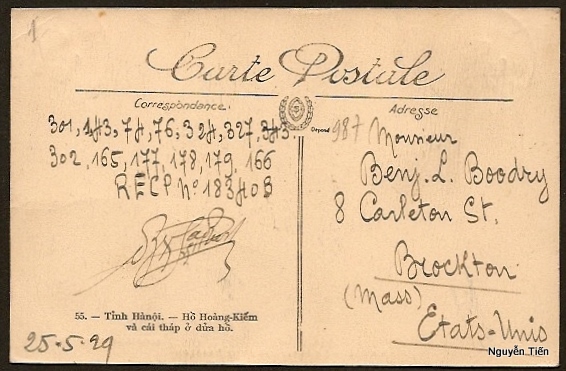 1
Carte Postale
Correspondance.
Adresse
Déposé
301, 143, 74, 76, 324, 327, 343.
302, 165, 177, 178, 179, 166
RECP Nº 18340B
987 Monsieur
Benj. L. Boodry
8 Carleton St.
Brockton
(Mass)
Etats-Unis
55. — Tỉnh Hànội. — Hồ Hoàng-Kiếm
và cái tháp ở dửa hồ.
25-5-29
Nguyễn Tiến